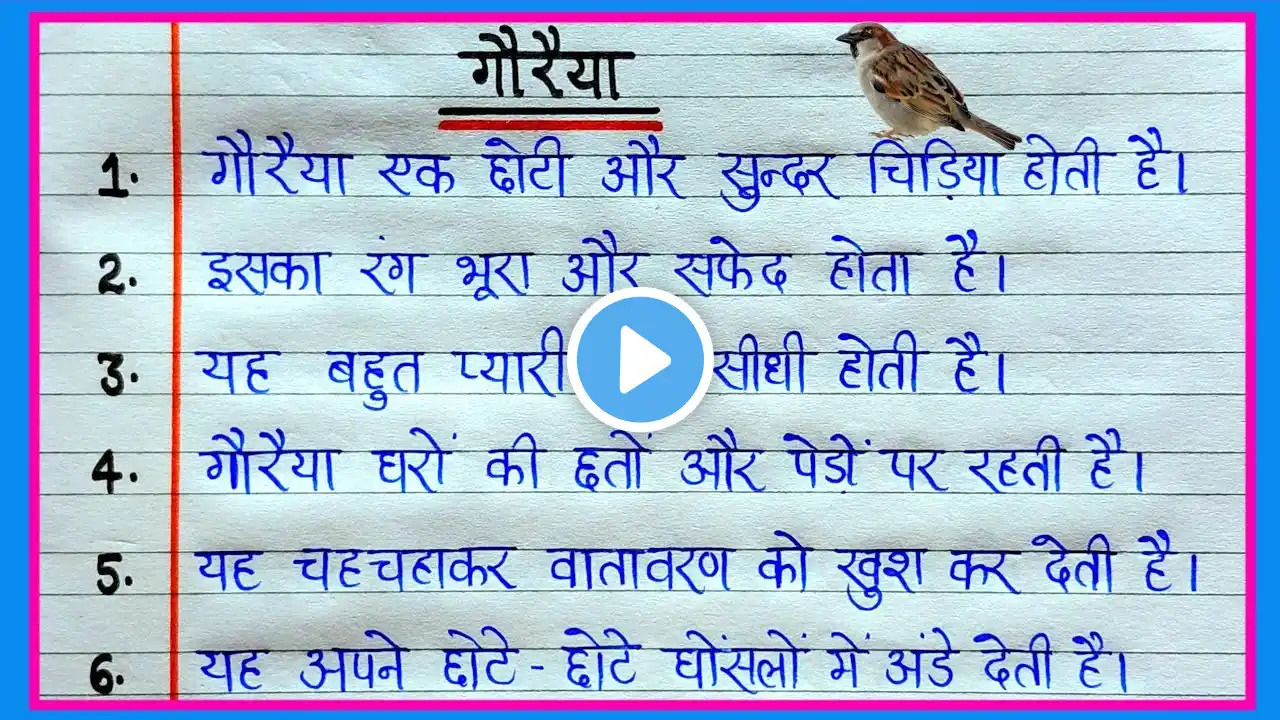 गौरैया
1. गौरैया एक छोटी और सुन्दर चिड़िया होती है।
2. इसका रंग भूरा और सफेद होता है।
3. यह बहुत प्यारी सीधी होती है।
4. गौरैया घरों की छतों और पेड़ों पर रहती है।
5. यह चहचहाकर वातावरण को खुश कर देती है।
6. यह अपने छोटे-छोटे घोंसलों में अंडे देती है।